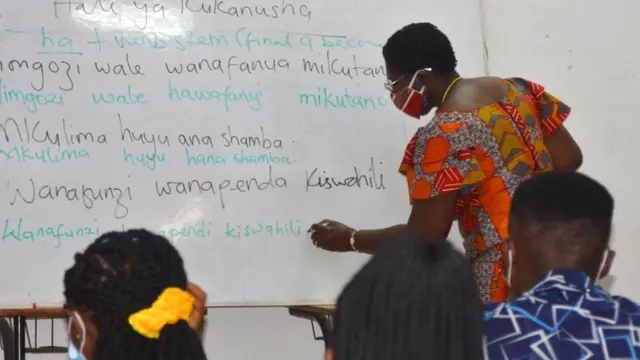 Hali ya Kukanusha
ha + verb stem (final a becom
ongozi wale wanafanya mikutan
imgozi wale hawafanyi mikutano
Mkulima huyu ana shamba.
Mkulima huyu hana shamba.
Wanafunzi wanapenda Kiswahili
Wanafunzi pendi kiswahili